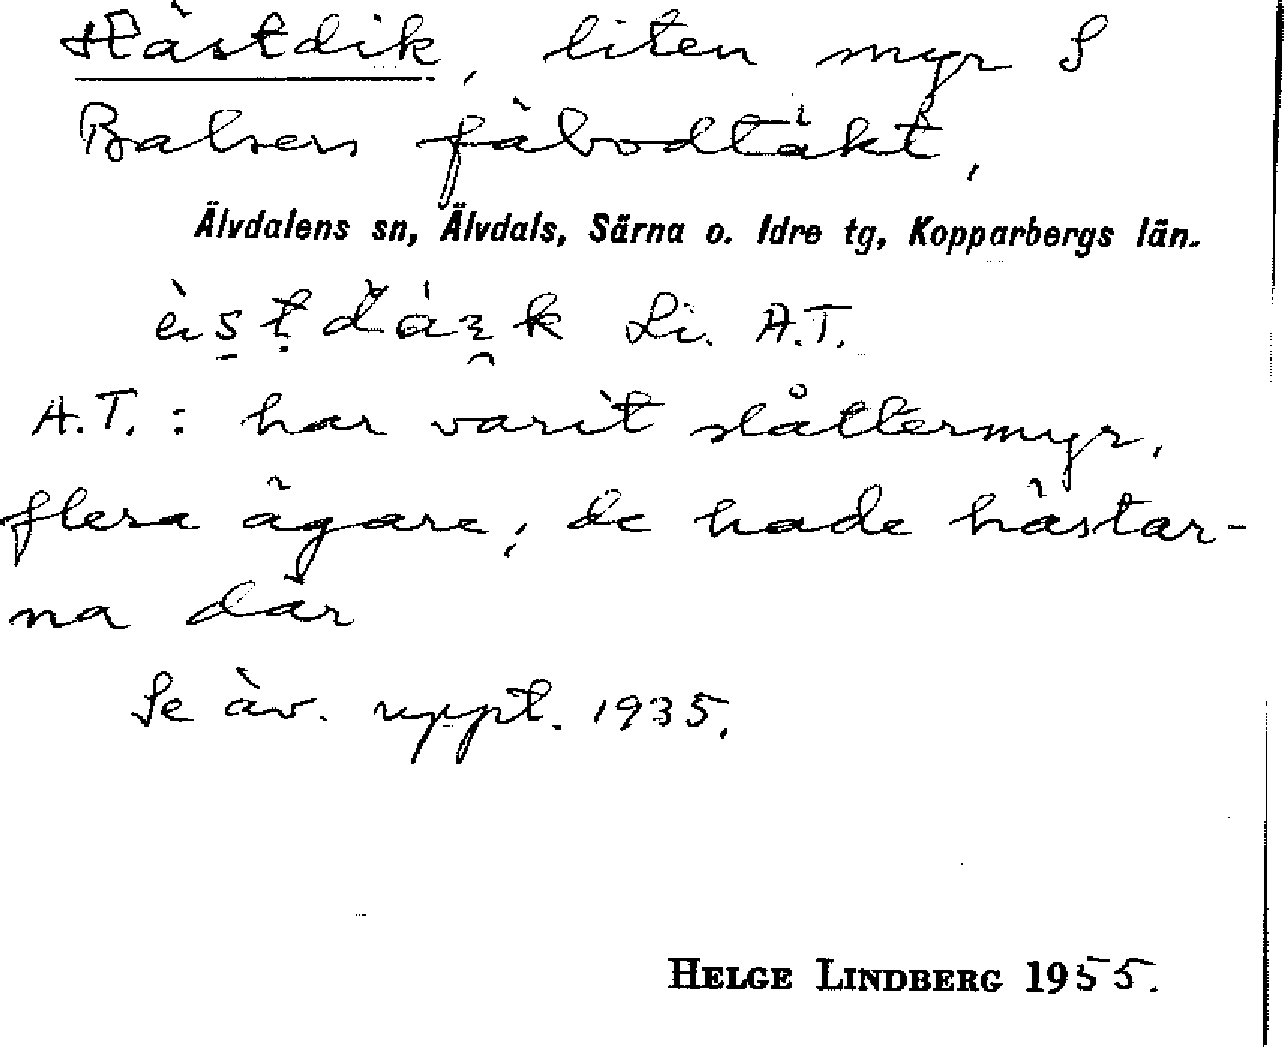 Hästdik, liten myr S
Balsers fäbodtäkt,
Älvdalens sn, Älvdals, Särna o. Idre tg, Kopparbergs län.
Li. A.T.
A.T.: har varit slåttermyr,
flera ägare, de hade hästar-
na där
Se äv. uppt. 1935.
HELGE LINDBERG 1955.